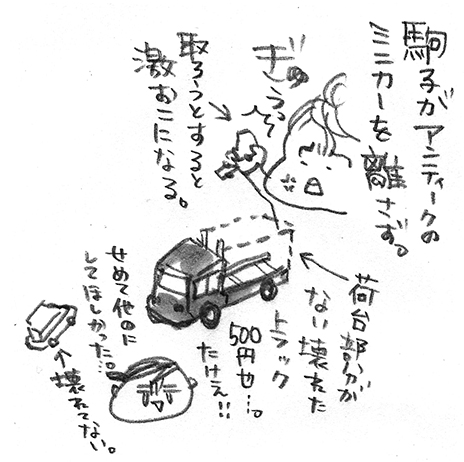 駒子がアンティークの
ミニカーを離さず。
ぎゅうっっ
取ろうとすると
激おこになる。
荷台部分が
ない壊れた
トラック
500円也…。
たけえ!!
せめて他のに
してほしかった…。
↑壊れてない。